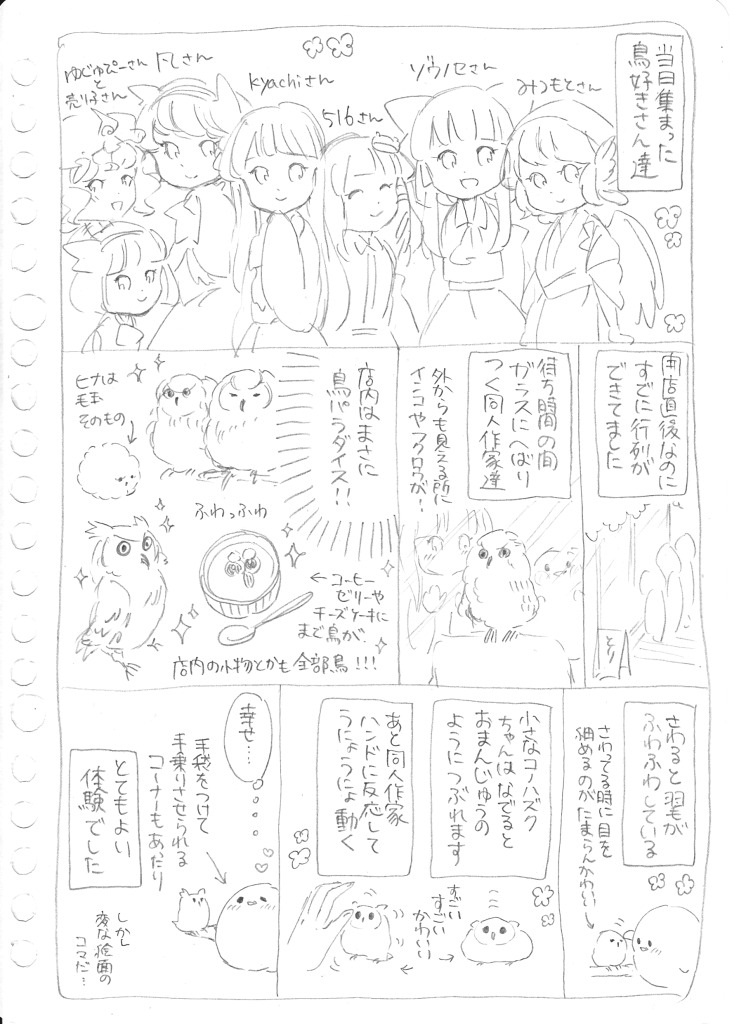 当日集まった
鳥好きさん達
みつもとさん
ゾウノセさん
516さん
kyachiさん
凡さん
ゆじゅぴーさん
と
売り子さん
開店直後なのに
すでに行列が
できてました
とり
待ち時間の間
ガラスにへばり
つく同人作家達
外からも見える所に
インコやフクロウが!
店内はまさに
鳥パラダイス!!
ヒナは
毛玉
そのもの
ふわっふわ
←コーヒー
ゼリーや
チーズケーキに
まで鳥が、
店内の小物とかも全部鳥!!!
さわると羽毛が
ふわふわしている
さわってる時に目を
細めるのがたまらんかわいい
小さなコノハズク
ちゃんはなでると
おまんじゅうの
ようにつぶれます
すごい
すごい
かわいい
あと同人作家
ハンドに反応して
うにょうにょ動く
幸せ…
手袋をつけて
手乗りさせられる
コーナーもあったり
とてもよい
体験でした
しかし
変な絵面の
コマだ…